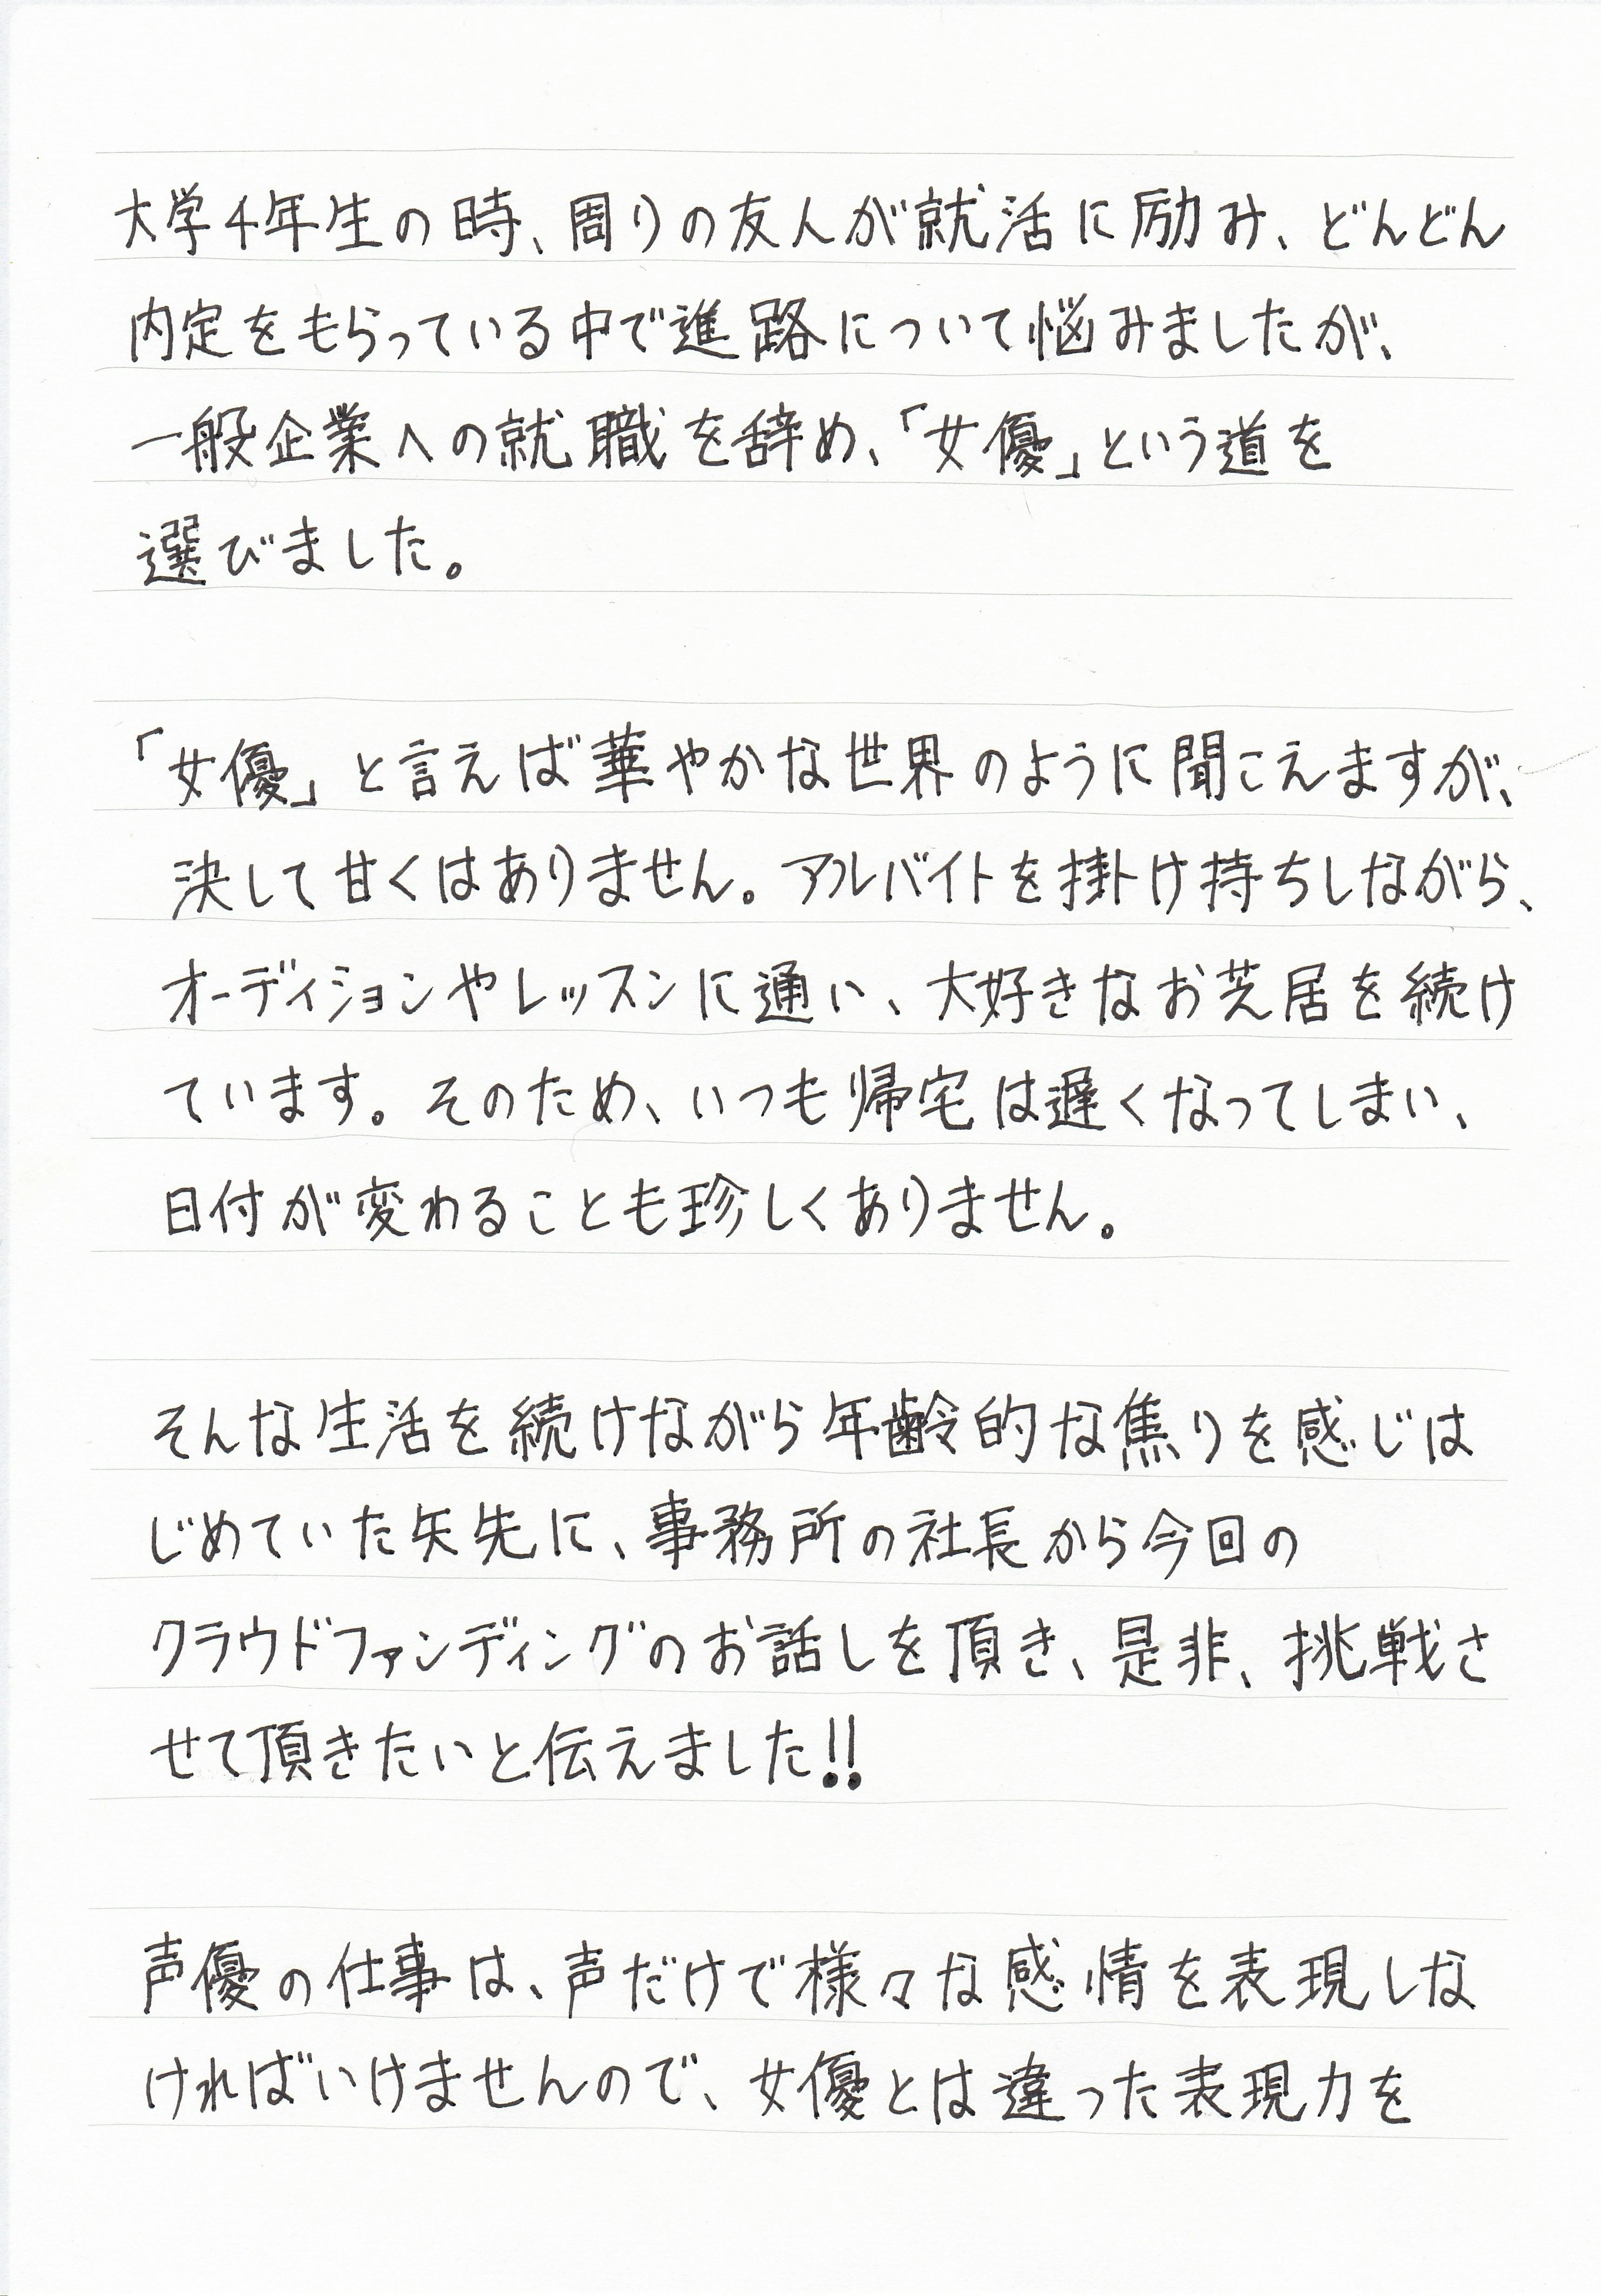 大学4年生の時、周りの友人が就活に励み、どんどん
内定をもらっている中で進路について悩みましたが、
一般企業への就職を辞め、「女優」という道を
選びました。
「女優」と言えば華やかな世界のように聞こえますが、
決して甘くはありません。アルバイトを掛け持ちしながら、
オーディションやレッスンに通い、大好きなお芝居を続け
ています。そのため、いつも帰宅は遅くなってしまい、
日付が変わることも珍しくありません。
そんな生活を続けながら年齢的な焦りを感じは
じめていた矢先に、事務所の社長から今回の
クラウドファンディングのお話しを頂き、是非、挑戦さ
せて頂きたいと伝えました!!
声優の仕事は、声だけで様々な感情を表現しな
ければいけませんので、女優とは違った表現力を